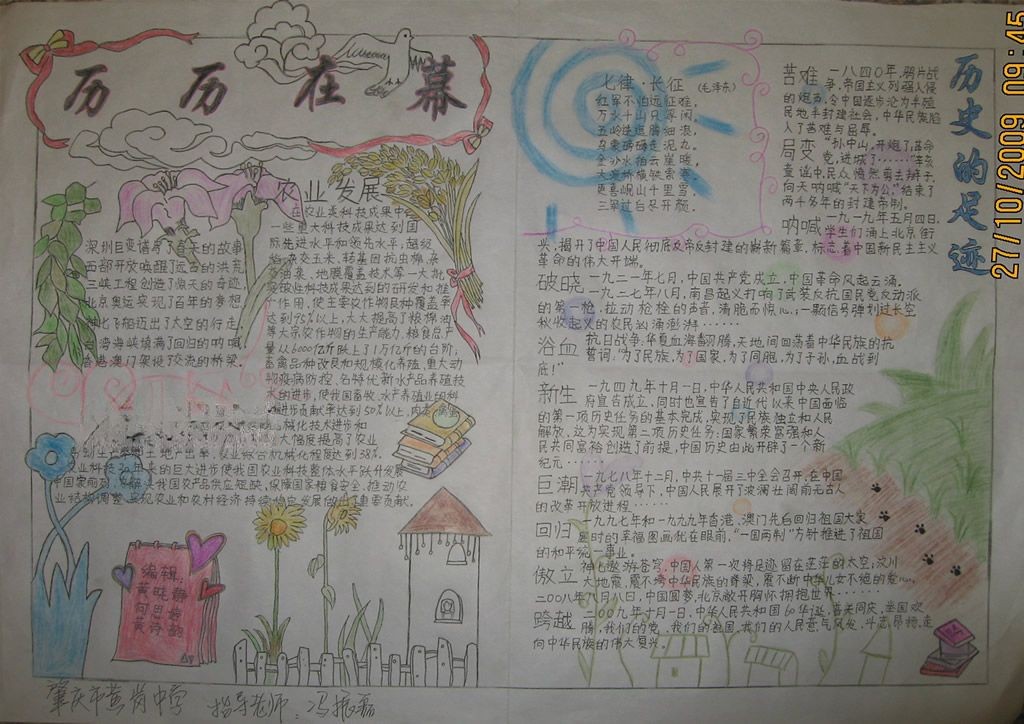 历历在幕
深圳巨变谱写了春天的故事
西部开放唤醒了远古的洪荒
三峡工程创造了惊天的奇迹
北京奥运实现了百年的梦想
神七飞船迈出了太空的行走
台湾海峡填满了回归的呐喊
香港澳门架设了交流的桥梁.
农业发展
在农业类科技成果中
一些重大科技成果达到国
际先进水平和领先水平,超级
杂交玉米、转基因抗虫棉、杂
油菜、地膜覆盖技术等一大批
突破性科技成果达到的研发和推
广作用,使主要农作物良种覆盖率
达到95%以上,大大提高了粮棉油
等大宗农作物的生产能力.粮食总产
量从6000亿斤跃上了1万亿斤的台阶;
畜禽品种改良和规模化养殖,重大动
物疫病防控、名特优新水产品养殖技
术的进步,使我国畜牧、水产养殖业的科
进步贡献率达到50%以上,
械化技术进步和
大幅度提高了农业
土地产出率,农业综合机械化程度达到38%.
农业科技30年来的巨大进步使我国农业科技整体水平跃升发展
我国农产品供应短缺,保障国家粮食安全,推动农
业结构调整,实现农业和农村经济持续稳定发展做出重要贡献.
编辑:
黄晓静
何思婷
黄诗韵
肇庆市黄岗中学 指导老师:冯振磊
七律·长征 (毛泽东)
红军不怕远征难,
万水千山只等闲.
五岭逶迤腾细浪,
乌蒙磅礴走泥丸.
金沙水拍云崖暖,
大渡桥横铁索寒.
更喜岷山千里雪,
三军过后尽开颜.
历史的足迹
苦难 一八四〇年,鸦片战
争,帝国主义列强入侵
的炮声,令中国逐步沦为半殖
民地半封建社会,中华民族陷
入了苦难与屈辱.
局变 "孙中山,开炮了革命
党,进城了……"辛亥
童谣中,民众愤然剪去辫子,
向天呐喊"天下为公"结束了
两千多年的封建帝制.
呐喊 一九一九年五月四日.
学生们涌上北京街
头,揭开了中国人民彻底反帝反封建的崭新篇章,标志着中国新民主主义
革命的伟大开端.
破晓 一九二一年七月,中国共产党成立,中国革命风起云涌.
一九二七年八月,南昌起义打响了武装反抗国民党反动派
的第一枪,拉动枪栓的声音,清脆而惊心;一颗信号弹划过长空
秋收起义的农民如涛澎湃……
浴血 抗日战争,华夏血海翻腾,天地间回荡着中华民族的抗
誓词:"为了民族,为了国家,为了同胞,为了子孙,血战到
底!"
新生 一九四九年十月一日,中华人民共和国中央人民政
府宣告成立.同时也宣告了自近代以来中国面临
的第一项历史任务的基本完成,实现了民族独立和人民
解放,这为实现第二项历史任务:国家繁荣富强和人
民共同富裕创造了前提,中国历史由此开辟了一个新
纪元……
巨潮 一九七八年十二月,中共十一届三中全会召开,在中国
共产党领导下,中国人民展开了波澜壮阔前无古人
的改革开放进程……
回归 一九九七年和一九九九年香港、澳门先后回归祖国大家
庭时的幸福图画犹在眼前,"一国两制"方针推进了祖国
的和平统一事业.
傲立 神七遨游苍穹,中国人第一次将足迹留在茫茫的太空;汶川
大地震,震不垮中华民族的脊梁,震不断中华儿女不绝的爱心.
二〇〇八年八月八日,中国圆梦,北京敞开胸怀拥抱世界……
跨越 二〇〇九年十月一日,中华人民共和国60华诞,普天同庆,举国欢
腾,我们的党、我们的祖国、我们的人民意气风发、斗志昂扬,走
向中华民族的伟大复兴.
27/10/2009 09:45